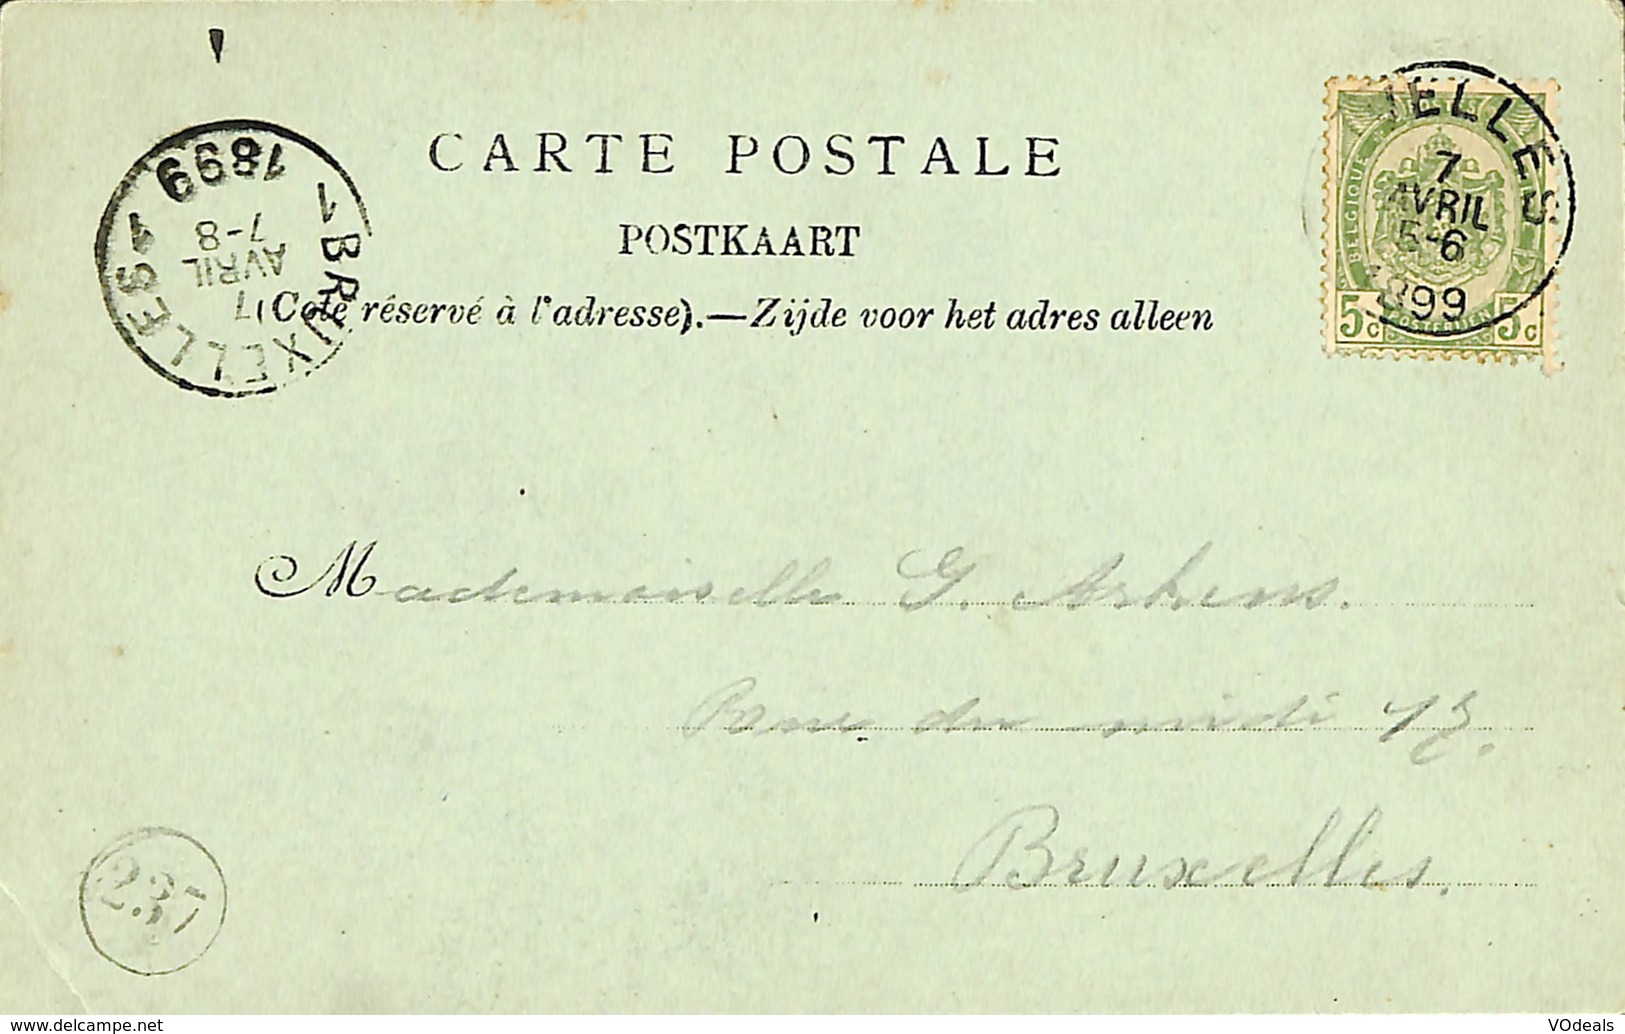 CARTE POSTALE
POSTKAART
(Coté réservé à l'adresse).—Zijde voor het adres alleen
1 BRUXELLES 1
7
AVRIL
7-8
1899
ELLES
7
AVRIL
5-6
1899
POSTES
BELGIQUE
5c POSTERIJEN 5c
Mademoiselle G.
Rue du midi
Bruxelles.
237
www.delcampe.net
VOdeals